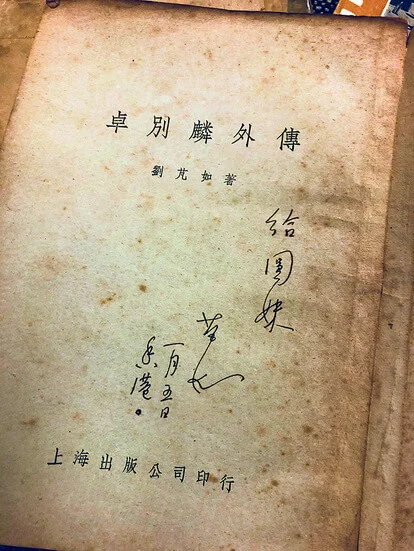 卓別麟外傳
劉芃如著
給圓妹
芃如
一月五日
香港。
上海出版公司印行